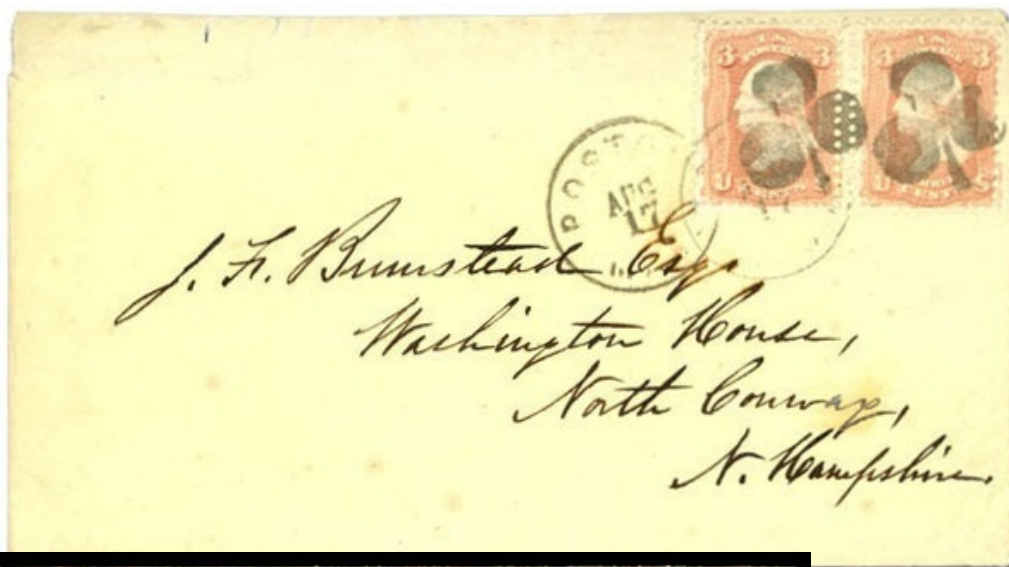 3 3 3 3
BOSTO
AUG
17
17
J. F. Bumstead Esq.
Washington House,
North Conway,
N. Hampshire.